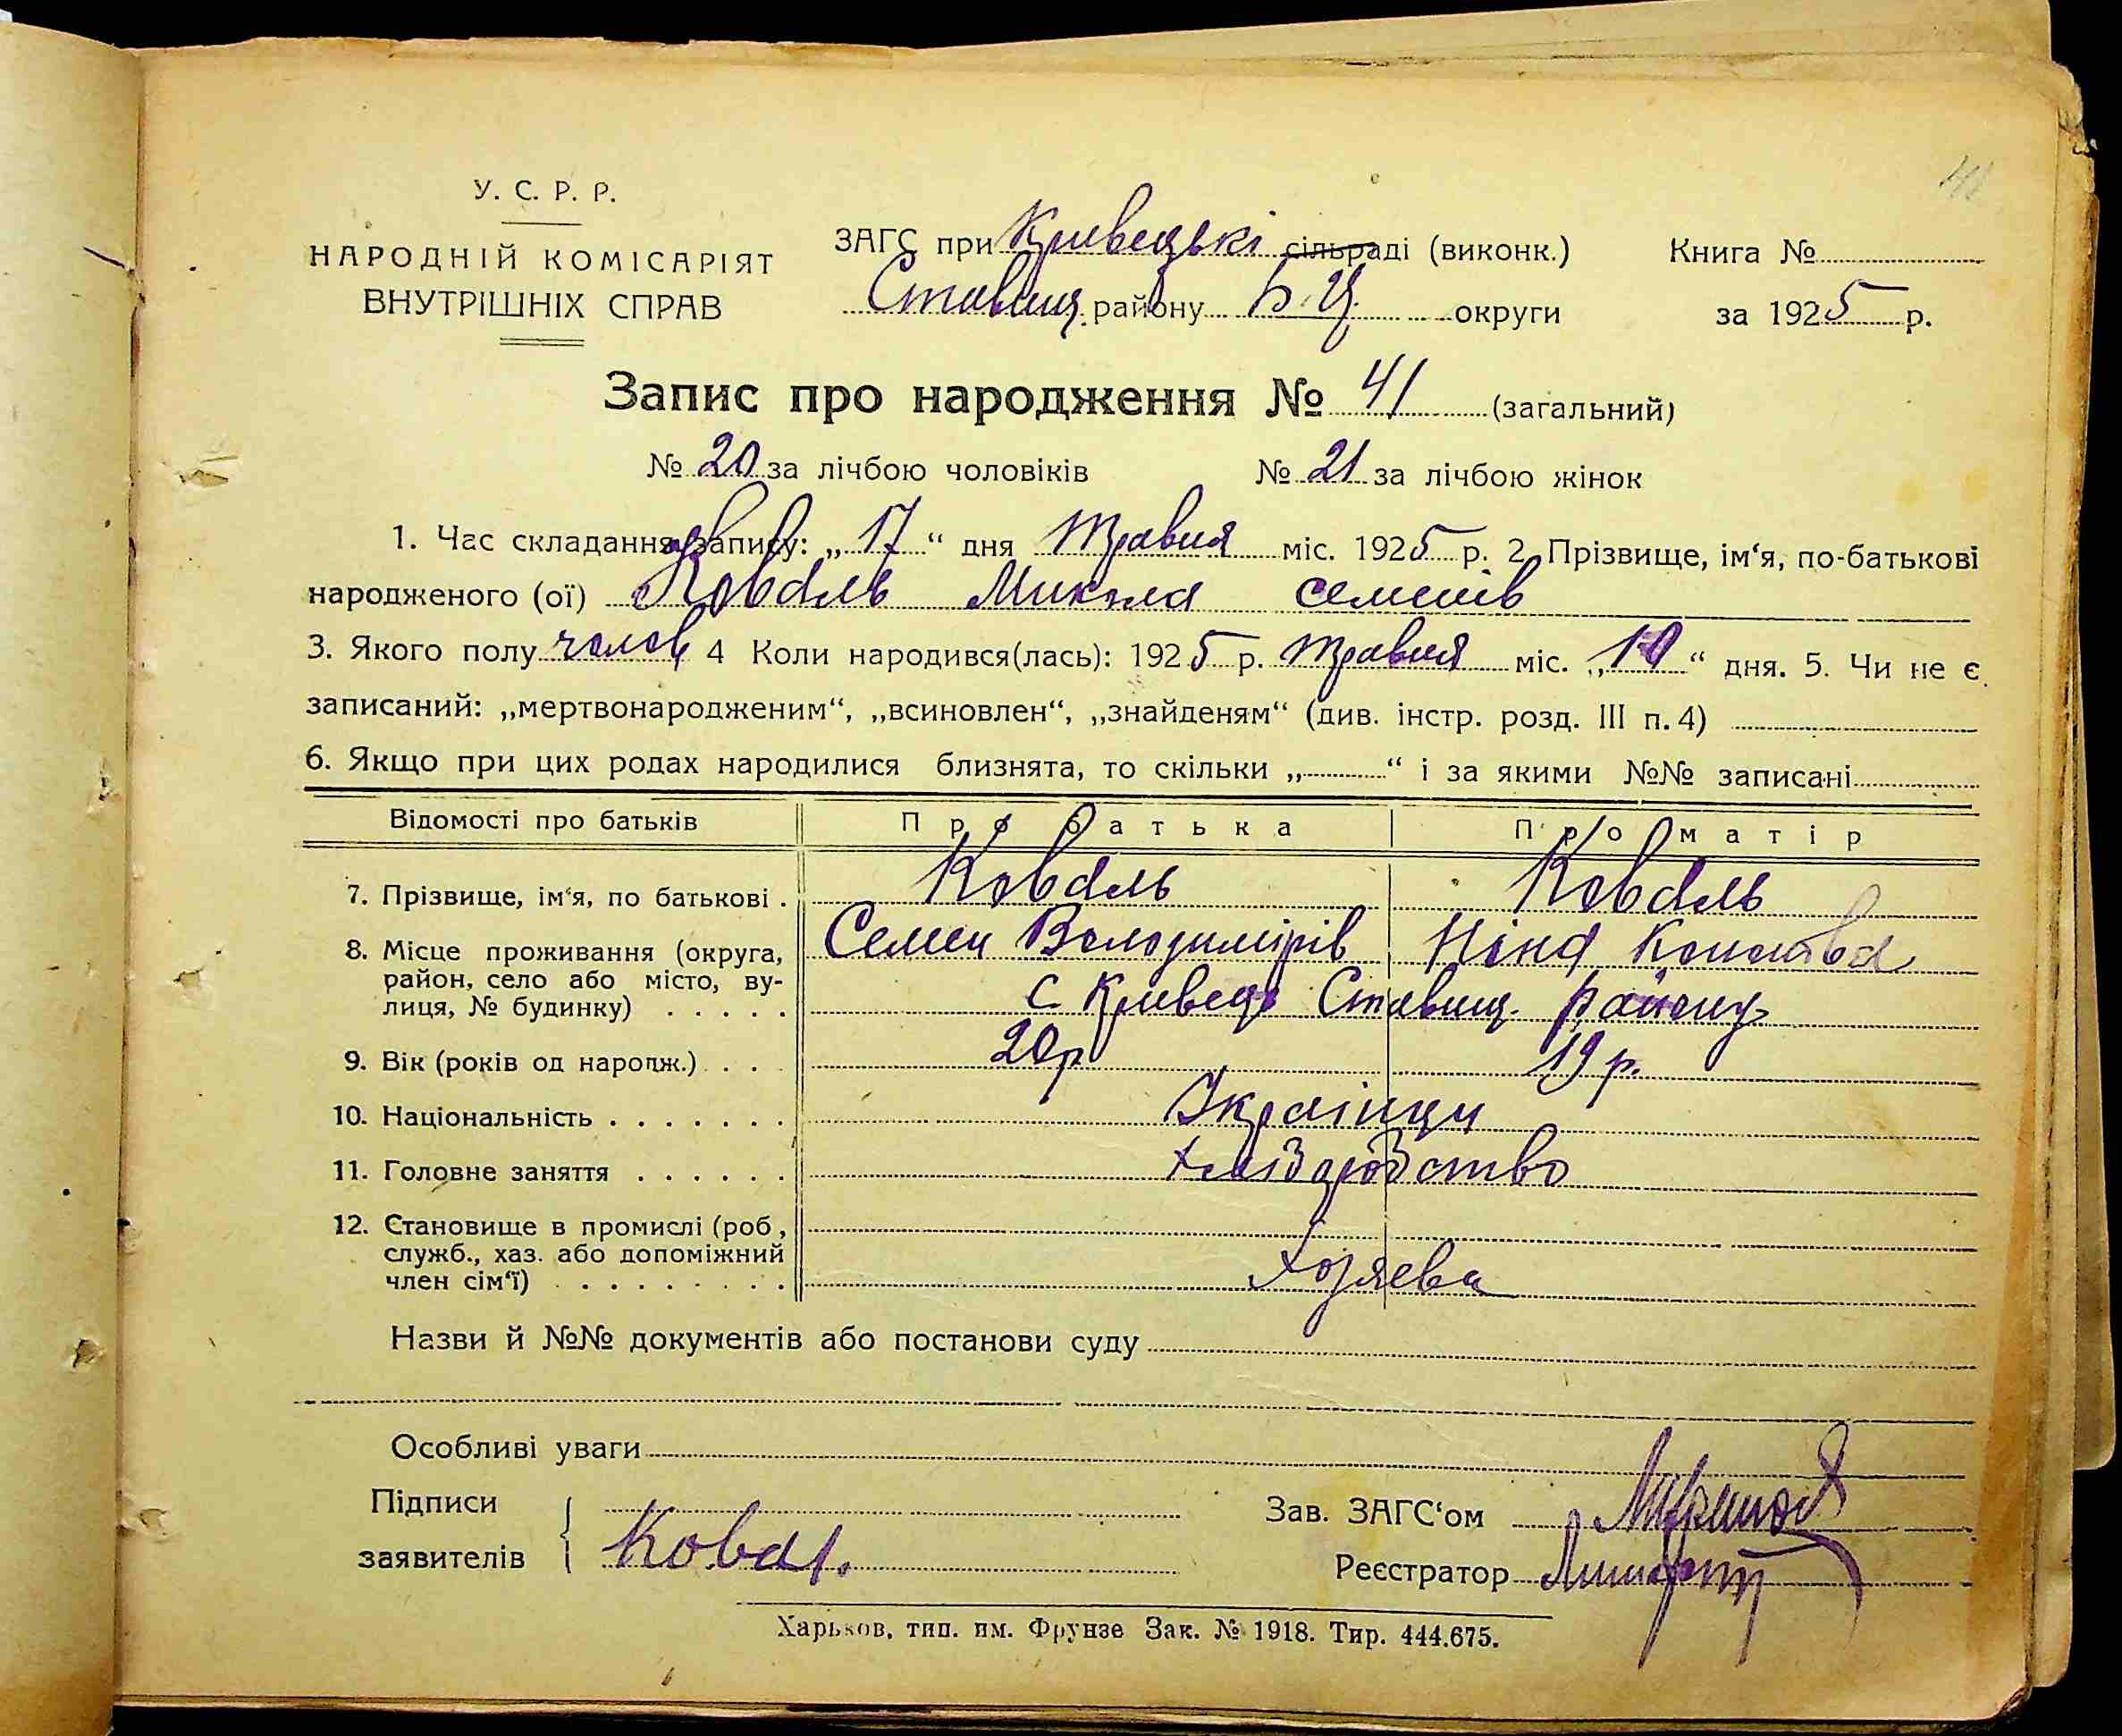 У. С. Р. Р.
НАРОДНІЙ КОМІСАРІЯТ
ВНУТРІШНІХ СПРАВ
ЗАГС при Кривецькі сільраді (виконк.)
Ставищ. району Б. Ц. округи
Книга №
за 1925 р.
41
Запис про народження № 41 (загальний)
№ 20 за лічбою чоловіків № 21 за лічбою жінок
1. Час складання запису: „17“ дня Травня міс. 1925 р. 2. Прізвище, ім‘я, по-батькові
народженого (ої) Коваль Микола Семенів
3. Якого полу чолов 4 Коли народився(лась): 1925 р. травня міс. „10“ дня. 5. Чи не є
записаний: „мертвонародженим“, „всиновлен“, „знайденям“ (див. інстр. розд. III п. 4)
6. Якщо при цих родах народилися близнята, то скільки „ “ і за якими №№ записані
Відомості про батьків Про батька Про матір
7. Прізвище, ім‘я, по батькові . Коваль Коваль
8. Місце проживання (округа, Семен Володимірів Ніна
район, село або місто, ву-
лиця, № будинку) . . . . . с. Кривець Ставищ. району
9. Вік (років од народж.) . . . 20 р 19 р.
10. Національність . . . . . . . Українци
11. Головне заняття . . . . . . Хліборобство
12. Становище в промислі (роб,
служб., хаз. або допоміжний
член сім‘ї) . . . . . . . . Хозяева
Назви й №№ документів або постанови суду
Особливі уваги
Підписи
заявителів Ковал.
Зав. ЗАГС‘ом
Реєстратор
Харьков, тип. им. Фрунзе Зак. № 1918. Тир. 444.675.